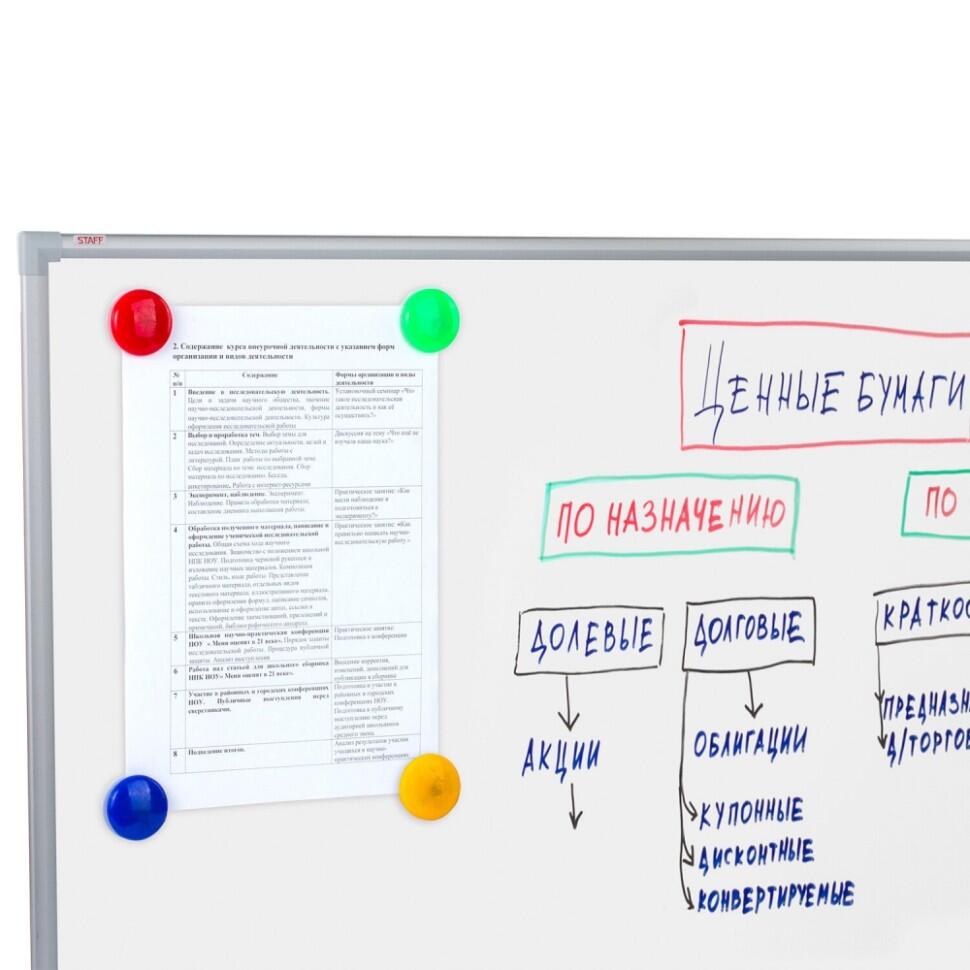 STAFF
2. Содержание курса внеурочной деятельности с указанием форм
организации и видов деятельности
№
п/п
Содержание
Формы организации и виды
деятельности
1
Введение в исследовательскую деятельность.
Цели и задачи научного общества, значение
научно-исследовательской деятельности, формы
научно-исследовательской деятельности. Культура
оформления исследовательской работы
Установочный семинар «Что
такое исследовательская
деятельность и как её
осуществлять?»
2
Выбор и проработка тем. Выбор темы для
исследований. Определение актуальности, целей и
задач исследования. Методы работы с
литературой. План работы по выбранной теме.
Сбор материала по теме исследования. Сбор
материала по исследованию: Беседа,
анкетирование. Работа с интернет-ресурсами
Дискуссия на тему «Что ещё не
изучила наша наука?»
3
Эксперимент, наблюдение. Эксперимент.
Наблюдение. Правила обработки материала,
составление дневника выполнения работы.
Практическое занятие: «Как
вести наблюдение и
подготовиться к
эксперименту?»
4
Обработка полученного материала, написание и
оформление ученической исследовательской
работы. Общая схема хода научного
исследования. Знакомство с положением школьной
НПК НОУ. Подготовка черновой рукописи и
изложение научных материалов. Композиция
работы. Стиль, язык работы. Представление
табличного материала, отдельных видов
текстового материала, иллюстративного материала,
правила оформления формул, написание символов,
использование и оформление цитат, ссылки в
тексте. Оформление заимствований, приложений и
примечаний, библиографического аппарата.
Практическое занятие: «Как
правильно написать научно-
исследовательскую работу.»
5
Школьная научно-практическая конференция
НОУ « Меня оценят в 21 веке». Порядок защиты
исследовательской работы. Процедура публичной
защиты. Анализ выступления
Практические занятие:
Подготовка к конференции
6
Работа над статьей для школьного сборника
НПК НОУ« Меня оценят в 21 веке».
Внесение корректив,
изменений, дополнений для
публикации в сборнике
7
Участие в районных и городских конференциях
НОУ. Публичные выступления перед
сверстниками.
Подготовка и участие в
районных и городских
конференциях НОУ.
Подготовка к публичному
выступлению перед
аудиторией школьников
среднего звена
8
Подведение итогов.
Анализ результатов участия
учащихся в научно-
практических конференциях
ЦЕННЫЕ БУМАГИ
ПО НАЗНАЧЕНИЮ
ПО
ДОЛЕВЫЕ
ДОЛГОВЫЕ
КРАТКОС
АКЦИИ
ОБЛИГАЦИИ
КУПОННЫЕ
ДИСКОНТНЫЕ
КОНВЕРТИРУЕМЫЕ
ПРЕДНАЗН
Д/ТОРГОВ